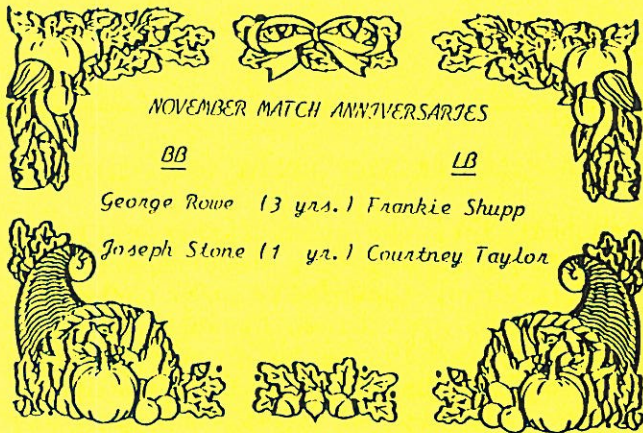 NOVEMBER MATCH ANNIVERSARIES
BB LB
George Rowe (3 yrs.) Frankie Shupp
Joseph Stone (1 yr.) Courtney Taylor